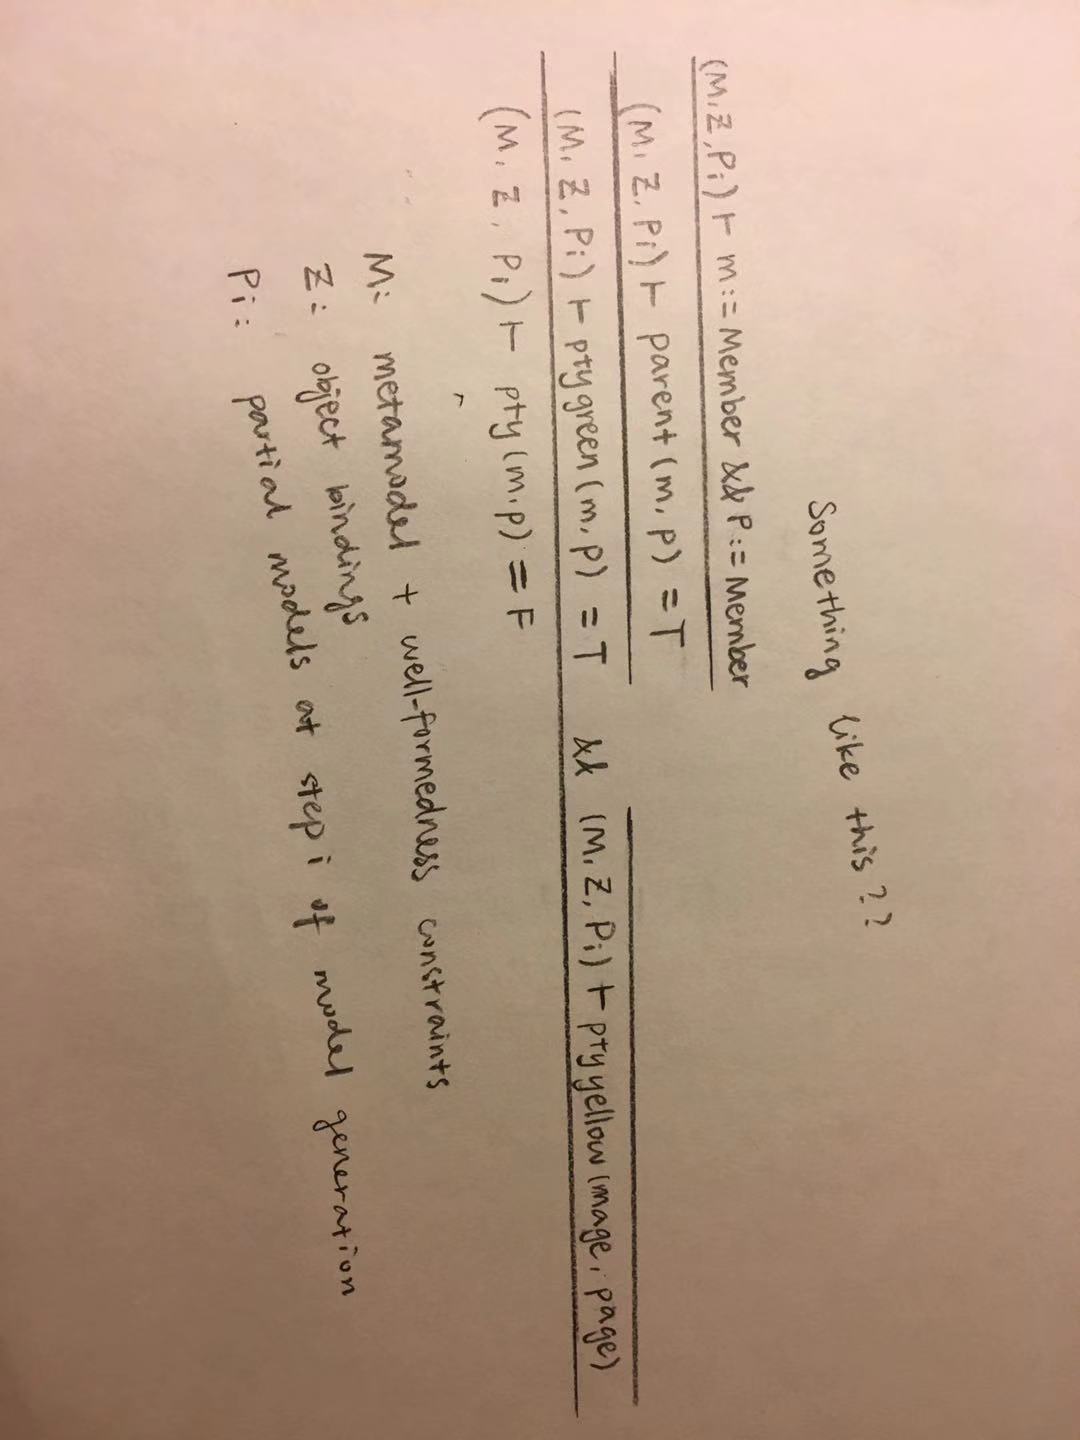 Something like this??
(M, Z, Pi) ⊢ m:= Member && P:= Member
(M, Z, Pi) ⊢ parent (m, p) = T
(M, Z, Pi) ⊢ ptygreen (m, p) = T && (M, Z, Pi) ⊢ ptyyellow (mage, page)
(M, Z, Pi) ⊢ pty (m, p) = F
M: metamodel + well-formedness constraints
Z: object bindings
Pi: partial models at step i of model generation